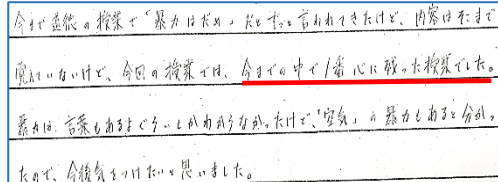 今まで道徳の授業で「暴力はだめ」だとずっと言われてきたけど、内容はそこまで
覚えていないけど、今回の授業では、今までの中で1番心に残った授業でした。
暴力は、言葉もあるよぐらいしかわからなかったけど、「空気」の暴力もあると分かっ
たので、今後気をつけたいと思いました。